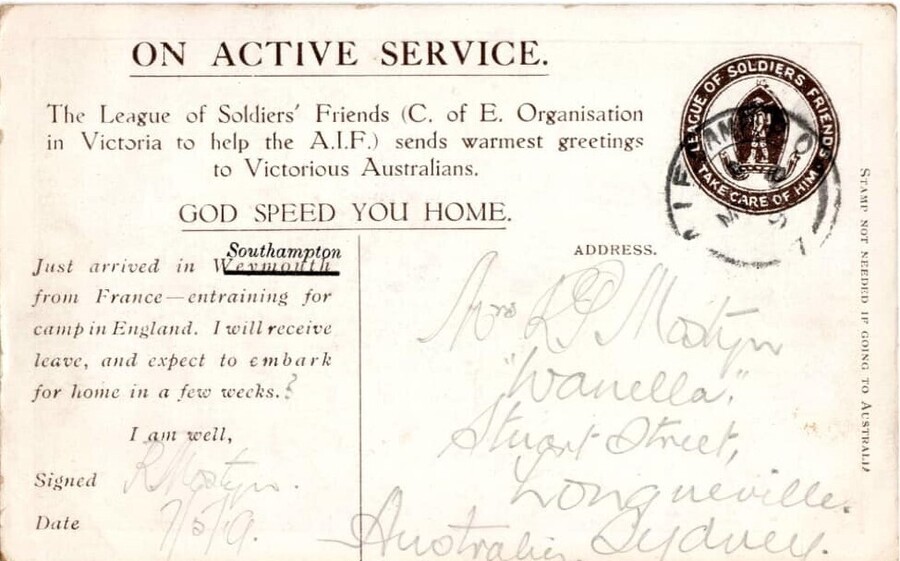 ON ACTIVE SERVICE.
The League of Soldiers' Friends (C. of E. Organisation
in Victoria to help the A.I.F.) sends warmest greetings
to Victorious Australians.
GOD SPEED YOU HOME.
LEAGUE OF SOLDIERS FRIENDS
TAKE CARE OF HIM
STAMP NOT NEEDED IF GOING TO AUSTRALIA
Southampton
Just arrived in Weymouth
from France—entraining for
camp in England. I will receive
leave, and expect to embark
for home in a few weeks.?
I am well,
Signed R Mostyn.
Date 7/5/19.
ADDRESS.
Mrs Mostyn
"Wanella",
Stuart Street,
Longueville.
Australia Sydney.